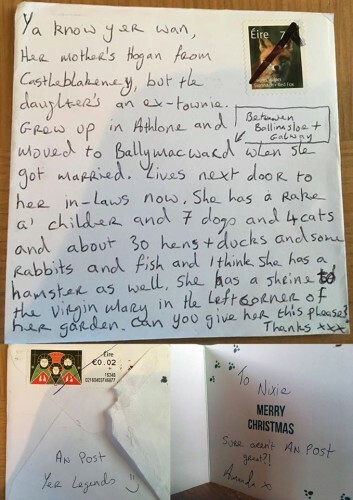 Ya know yer wan,
Her mother's Hogan from
Castleblakeney, but the
daughter's an ex-townie.
Grew up in Athlone and
moved to Ballymacward when she
got married. Lives next door to
her in-laws now. She has a rake
a' childer and 7 dogs and 4 cats
and about 30 hens + ducks and some
rabbits and fish and I think she has a
hamster as well. She has a shrine to
the Virgin Mary in the left corner of
her garden. Can you give her this please?
Thanks xxx
Éire 7
Between
Ballinasloe +
Galway
Éire
€0.02
An Post
Yer Legends
To Nixie
MERRY
CHRISTMAS
Sure aren't An Post
great?!